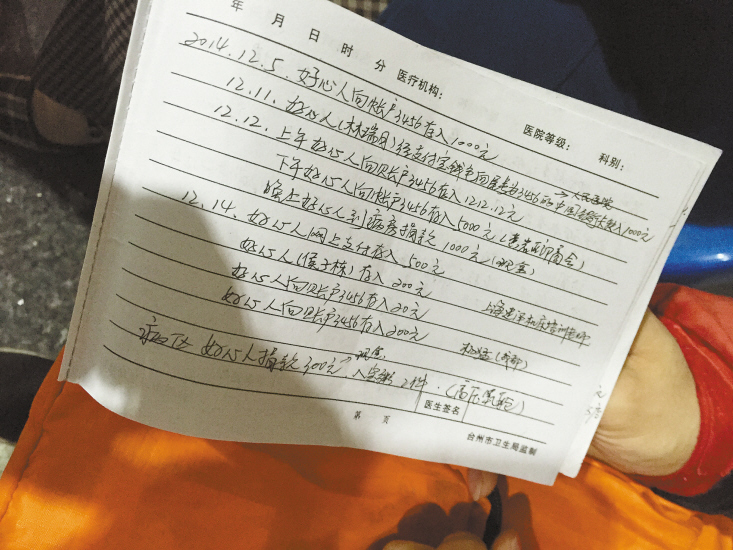 年 月 日 时 分 医疗机构： 医院等级： 科别：
2014.12.5. 好心人向帐户3456存入1000元
12.11. 好心人(林瑞月)经支付宝钱包向尾号为3456的中国 存入1000元
→人民医院
12.12. 上午好心人向帐户3456存入1212.12元
下午好心人向帐户3456存入5000元
晚上好心人到病房捐款1000元(现金)
12.14. 好心人网上支付存入500元
好心人 存入200元
好心人向帐户3456存入20元
好心人向帐户3456存入200元
病区 好心人捐款300元 现金
2件.
医生签名
第 页
台州市卫生局监制